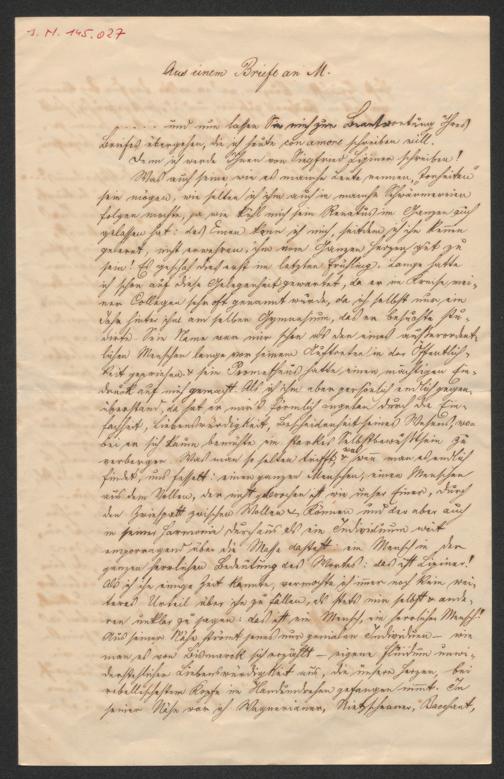 J. N. 145.027
Aus einem Briefe an M.
. . . . . und nun lassen Sie mich zur Beantwortung Ihres
Briefes übergehen, die ich heute con amore schreiben will.
Denn ich werde Ihnen von Siegfried Lipiner schreiben!
Was auch seine wie es manche Leute nennen, "Torheiten"
sein mögen, wie selten ich ihm auch in manche Schwärmereien
folgen mochte, ja wie kühl mich sein Renatus im Ganzen auch
gelassen hat: des Einen kann ich mich, seitdem ich ihn kennen
gelernt, nicht erwehren, ihm von Ganzem Herzen gut zu
sein! Es geschah dies erst im letzten Frühling. Lange hatte
ich schon auf diese Gelegenheit gewartet, da er im Kreise mei-
ner Collegen sehr oft genannt wurde, da ich selbst nur ein
Jahr hinter ihm am selben Gymnasium, das er besuchte stu-
dierte. Sein Name war mir schon als der eines außerordent-
lichen Menschen lange vor seinem Auftreten in der Öffentlich-
keit gepriesen & sein Prometheus hatte einen mächtigen Ein-
druck auf mich gemacht. Als ich ihm aber persönlich endlich gegen-
überstand, da hat er mir's förmlich angetan durch die Ein-
fachheit, Liebenswürdigkeit, Bescheidenheit seines Wesens, wo-
bei er sich kaum bemühte ein starkes Selbstbewußtsein zu
verbergen. Was man so selten trifft, & was, wenn man es endlich
findet, uns fesselt: einen ganzen Menschen, einen Menschen
aus dem Vollen, der nicht gebrochen ist wie unser Einer, durch
den Zwiespalt zwischen Wollen & Können und der aber auch
in seiner Harmonie durchaus als ein Individuum weit
emporragend über die Masse dasteht ein Mensch in der
ganzen herrlichen Bedeutung des Wortes: das ist Lipiner!
Als ich ihn einige Zeit kannte, vermochte ich immer noch kein wei-
teres Urteil über ihn zu fällen, als stets mir selbst & ande-
ren unklar zu sagen: das ist ein Mensch, ein herrlicher Mensch!
Aus seiner Nähe strömt jenes nur genialen Individuen – wie
man es von Bismarck sich erzählt – eigene Fluidum unwi-
derstehlicher Liebenswürdigkeit aus, die unsere Herzen, bei
rebellischestem Kopfe im Handumdrehen gefangen nimmt. In
seiner Nähe war ich Wagnerianer, Nietzscheaner, Bacchant,